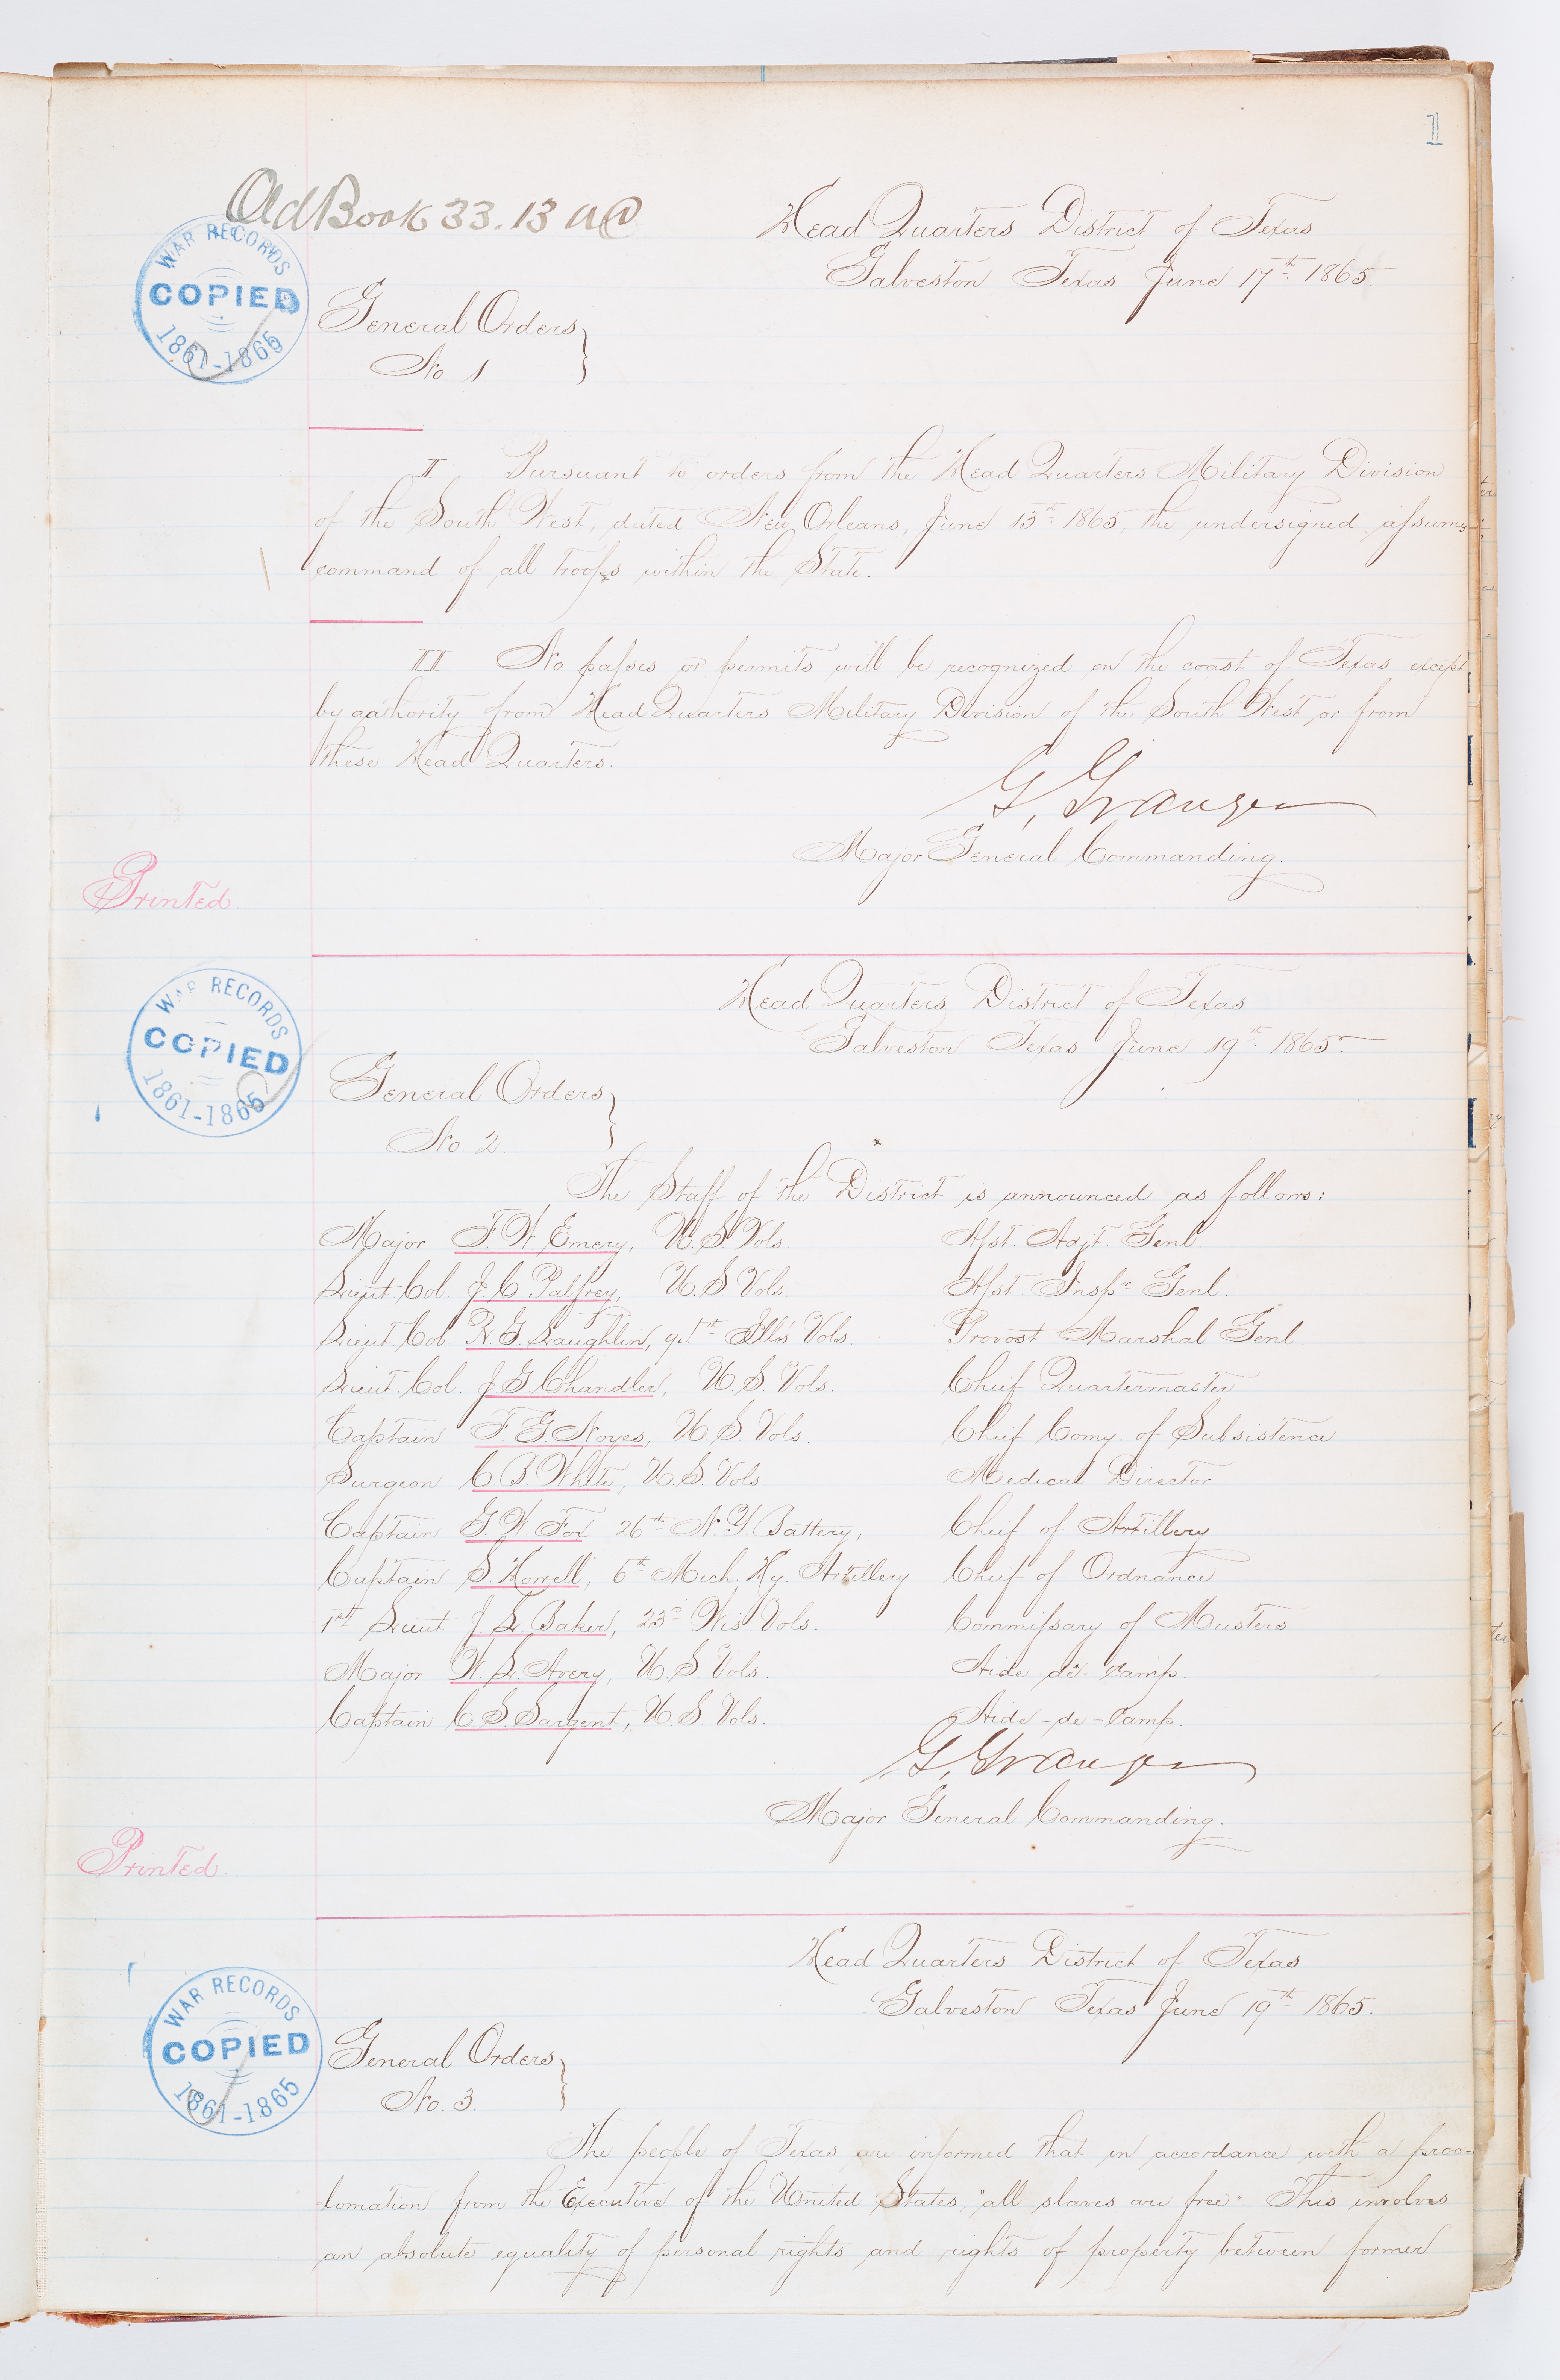 1
Old Book 33. 13 AC
WAR RECORDS
COPIED
1861-1865
Head Quarters District of Texas
Galveston Texas June 17th 1865.
General Orders
No. 1
I Pursuant to orders from the Head Quarters Military Division
of the South West, dated New Orleans, June 13th 1865, the undersigned assumes
command of all troops within the State.
II No passes or permits will be recognized on the coast of Texas except
by authority from Head Quarters Military Division of the South West, or from
these Head Quarters.
G. Granger
Major General Commanding.
Printed.
WAR RECORDS
COPIED
1861-1865
Head Quarters District of Texas
Galveston Texas June 19th 1865.
General Orders
No. 2.
The Staff of the District is announced as follows:
Major F. W. Emery, U. S. Vols. Asst. Adjt. Genl.
Lieut. Col. J. C. Palfrey, U. S. Vols. Asst. Inspr. Genl.
Lieut. Col. R. G. Laughlin, 94th Ills Vols. Provost Marshal Genl.
Lieut. Col. J. G. Chandler, U. S. Vols. Chief Quartermaster
Captain F. G. Noyes, U. S. Vols. Chief Comy. of Subsistence
Surgeon C. B. White, U. S. Vols Medical Director
Captain G. W. Fox 26th N. Y. Battery, Chief of Artillery
Captain S. Howell, 6th Mich. Hy. Artillery Chief of Ordnance
1st Lieut J. L. Baker, 23d Wis. Vols. Commissary of Musters
Major W. L. Avery, U. S. Vols. Aide-de-Camp.
Captain C. S. Sargent, U. S. Vols. Aide-de-Camp.
G. Granger
Major General Commanding.
Printed.
WAR RECORDS
COPIED
1861-1865
Head Quarters District of Texas
Galveston Texas June 19th 1865.
General Orders
No. 3.
The people of Texas are informed that in accordance with a proc=
=lamation from the Executive of the United States, "all slaves are free". This involves
an absolute equality of personal rights and rights of property between former